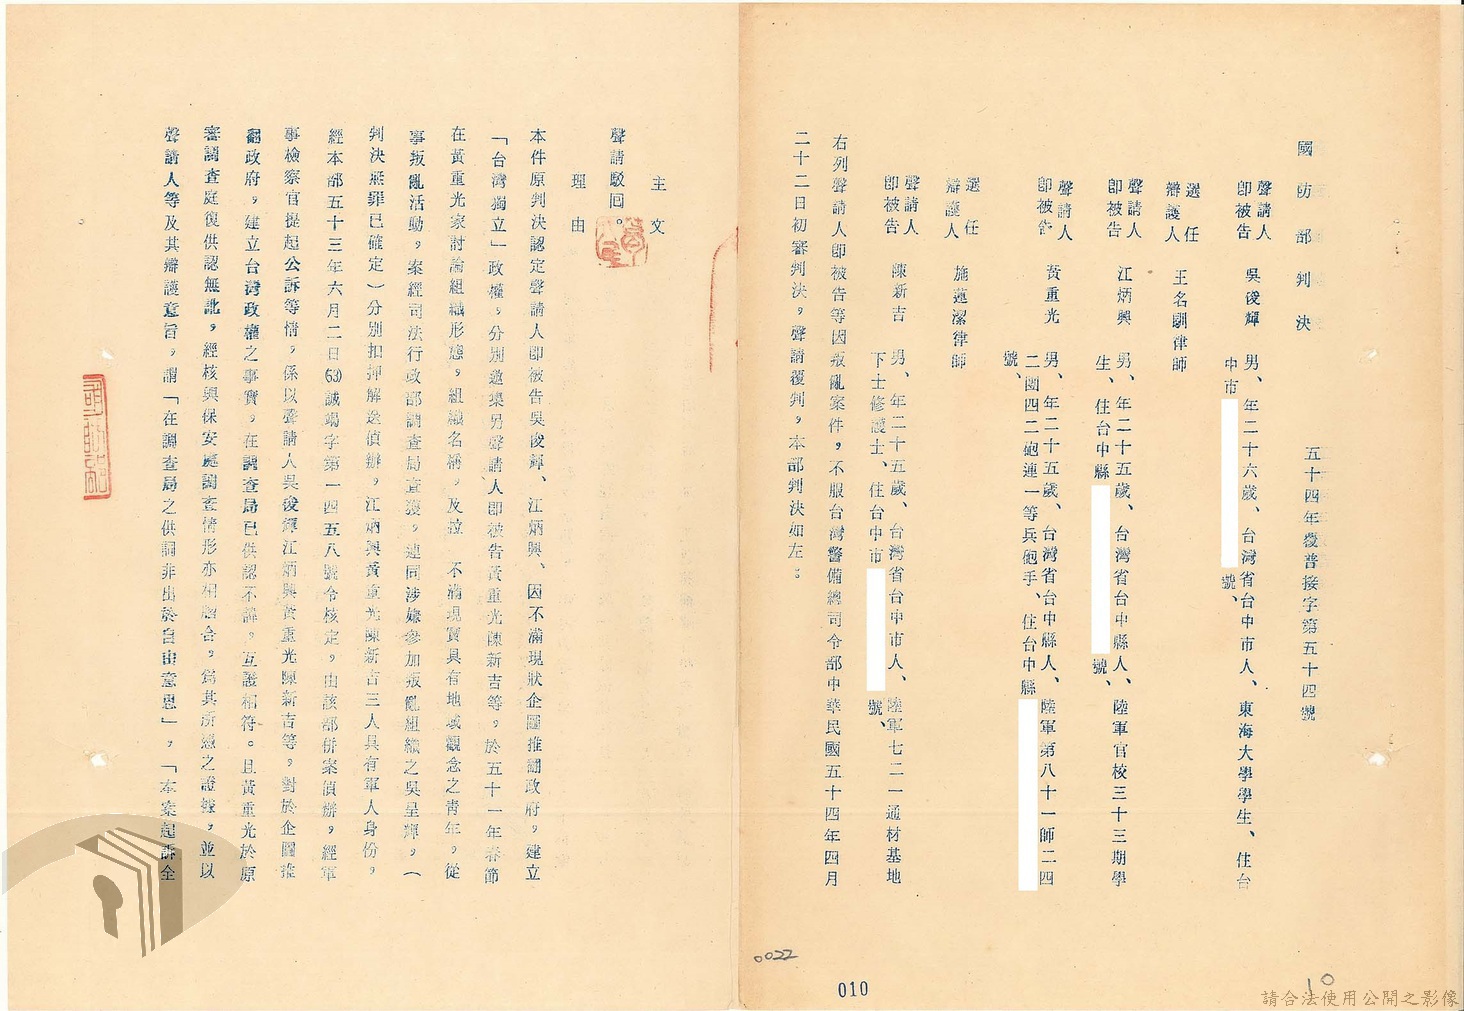 國防部判決
五十四年覆普接字第五十四號
聲請人
即被告
吳俊輝
男、年二十六歲、台灣省台中市人、東海大學學生、住台
中市
號、
選任
辯護人
王名馴律師
聲請人
即被告
江炳興
男、年二十五歲、台灣省台中縣人、陸軍官校三十三期學
生、住台中縣
號、
聲請人
即被告
黃重光
男、年二十五歲、台灣省台中縣人、陸軍第八十一師二四
二團四二砲連一等兵砲手、住台中縣
號、
選任
辯護人
施蓮潔律師
聲請人
即被告
陳新吉
男、年二十五歲、台灣省台中市人、陸軍七二一通材基地
下士修護士、住台中市
號、
右列聲請人即被告等因叛亂案件,不服台灣警備總司令部中華民國五十四年四月
二十二日初審判決,聲請覆判,本部判決如左:
主文
聲請駁回。
理由
本件原判決認定聲請人即被告吳俊輝、江炳興、因不滿現狀企圖推翻政府,建立
「台灣獨立」政權,分別邀集另聲請人即被告黃重光陳新吉等,於五十一年春節
在黃重光家討論組織形態,組織名稱,及拉 不滿現實具有地域觀念之青年,從
事叛亂活動,案經司法行政部調查局查獲,連同涉嫌參加叛亂組織之吳呈輝,(
判決無罪已確定)分別扣押解送偵辦,江炳興黃重光陳新吉三人具有軍人身份,
經本部五十三年六月二日(53)誠竭字第一四五八號令核定,由該部併案偵辦,經軍
事檢察官提起公訴等情,係以聲請人吳俊輝江炳興黃重光陳新吉等,對於企圖推
翻政府,建立台灣政權之事實,在調查局已供認不諱,互證相符。且黃重光於原
審調查庭復供認無訛,經核與保安處調查情形亦相脗合,為其所憑之證據,並以
聲請人等及其辯護意旨,謂「在調查局之供詞非出於自由意思」,「本案起訴全
0022
010
10
請合法使用公開之影像